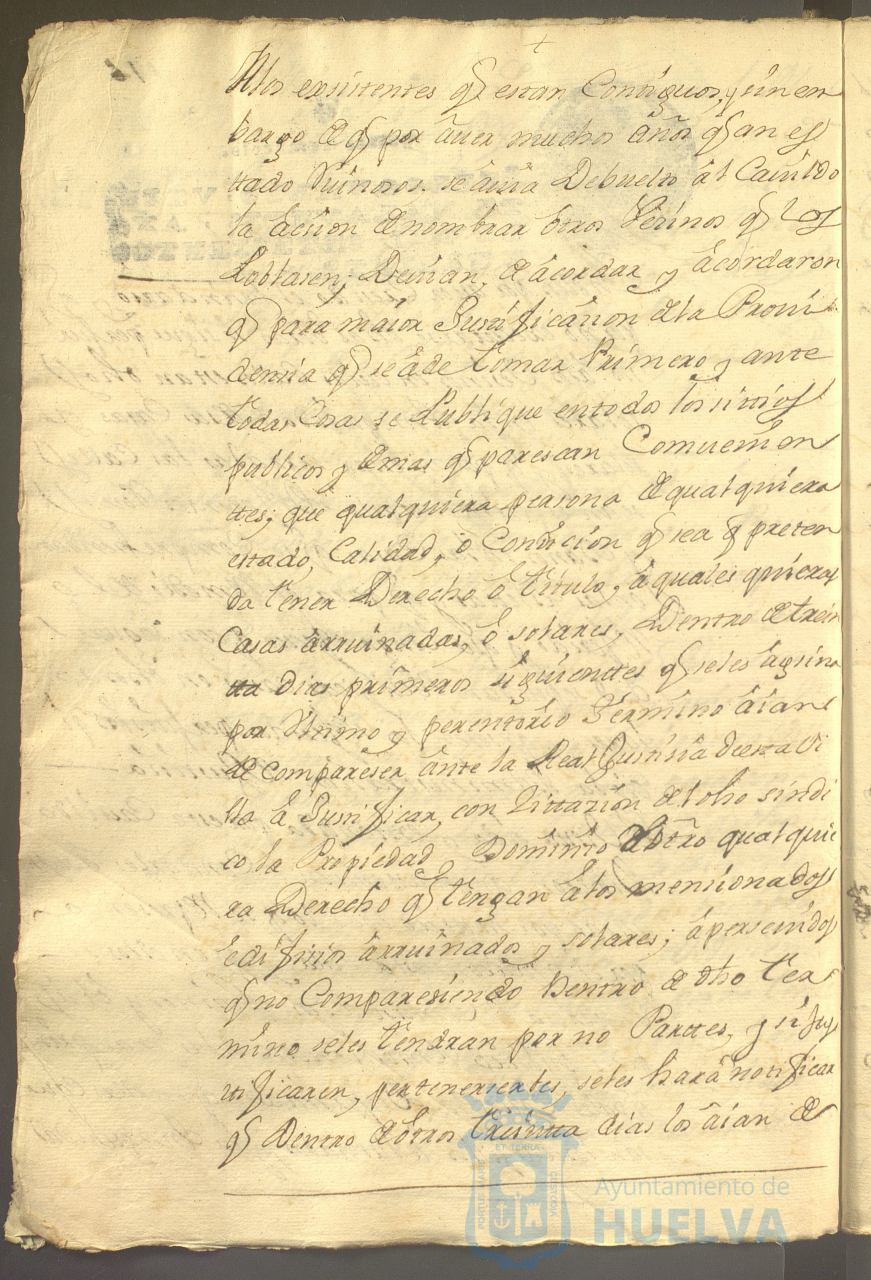 Alos existentes q̃ estan Contiguos, y sin em
bargo de q̃ por âver muchos âños q̃ an es
ttado Ruinosos. se âvia Debuelto âl Cavildo
la Âcsion de nombrar ôtros Vesinos q̃ los
Loblasen; Devian, de âcordar y âcordaron
q̃ para maior Justificâsion de la Provi
densia q̃ se â de tomar Primero y ante
todas Cosas se Publique en todos los sittios
publicos y demas q̃ paresean Comvenien
ttes; que qualquiera persona de qualquiera
estado, Calidad, ô Condicion q̃ sea q̃ preten
da tener Derecho ô titulo, â quales quieray
Casas ârruinadas, ô solares, Dentro de trein
tta dias primeros siguienttes q̃ seles âsigna
por Ultimo y perentôrio termino âian
de compareser ânte la Real Justisia de esta Vi
lla â Justificar, con Zittazion de dho sindi
co la Propiedad, Dominio ô ôtro qualquie
ra Derecho q̃ tengan â los mencionados
êdifisios ârruinados y solares; âpersevidos
q̃ no Comparesiendo Dentro de dho ter
mino, seles tendran por no Parttes, y si jus
tificaren, pertenenserles, seles hara notificar
q̃ Dentro de ôtros treintta dias los âian de
Ayuntamiento de
HUELVA
PORTUS MARIS
ET TERRÆ
CUSTODIA